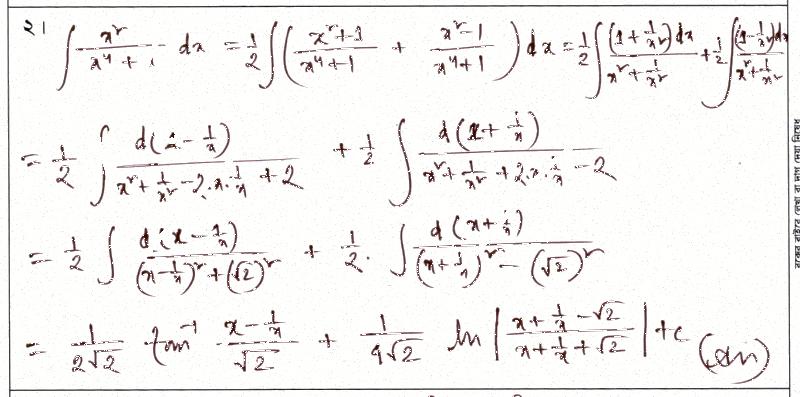 ২। ∫ x²/(x⁴ + 1) dx = 1/2 ∫ ( (x²+1)/(x⁴+1) + (x²-1)/(x⁴+1) ) dx = 1/2 ∫ (1 + 1/x²) dx / (x² + 1/x²) + 1/2 ∫ (1 - 1/x²) dx / (x² + 1/x²)
= 1/2 ∫ d(x - 1/x) / (x² + 1/x² - 2.x.1/x + 2) + 1/2 ∫ d(x + 1/x) / (x² + 1/x² + 2.x.1/x - 2)
= 1/2 ∫ d(x - 1/x) / ((x - 1/x)² + (√2)²) + 1/2. ∫ d(x + 1/x) / ((x + 1/x)² - (√2)²)
= 1/(2√2) tan⁻¹ (x - 1/x)/√2 + 1/(4√2) ln | (x + 1/x - √2)/(x + 1/x + √2) | + c (Ans)